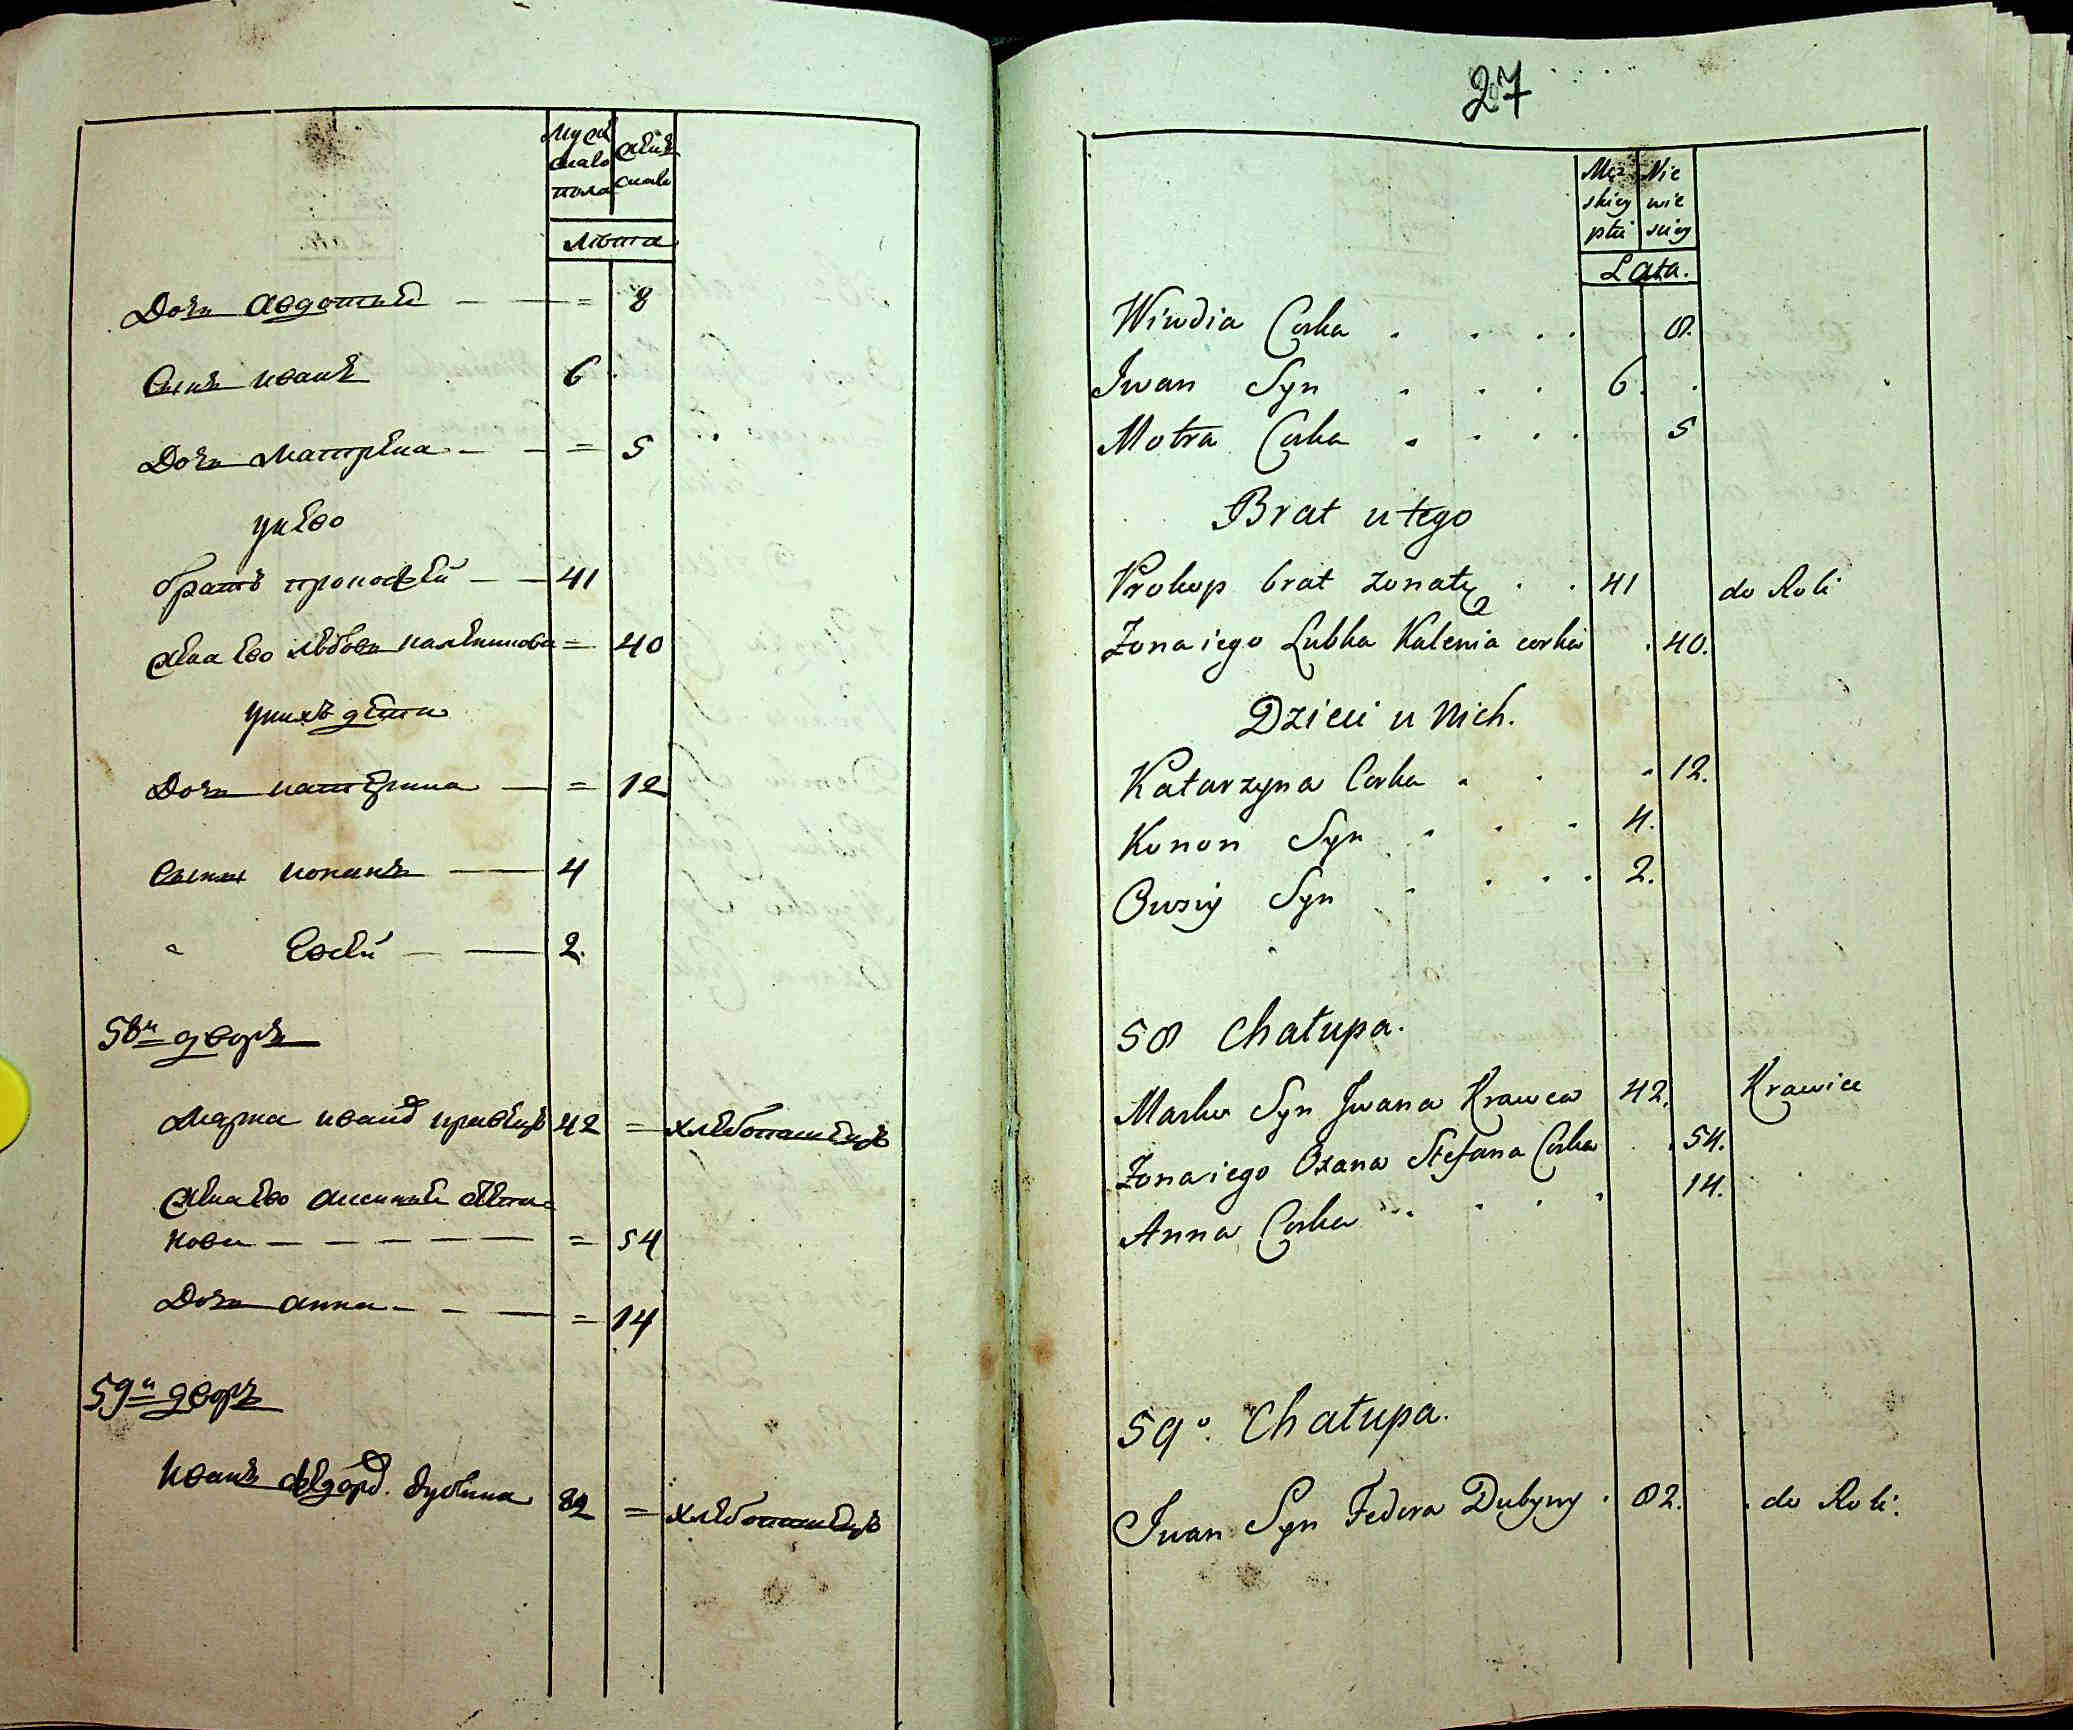 Мужс Женс
каго каго
пола
Лѣта
Дочь Авдотья — — = 8
Сынъ Иванъ 6
Дочь Матрена — — = 5
у нево
братъ прокофей — — 41
Жена ево Любовь = 40
у нихъ дѣти
Дочь катерина — = 12
Сынъ кононъ — 4
" Евсей — — 2.
58й дворъ
Марка Иванов кравецъ 42 = хлебопашецъ
Жена ево Аксинья Степа
нова — — — — — = 54
Дочь Анна — — — = 14
59й дворъ
Иванъ Федоров. дубина 82 = хлебопашецъ
27
Męz Nie
skiey wie
płci sciey
Lata.
Wiwdia Corka . . . . 8.
Iwan Syn . . . 6. .
Motra Corka . . . . 5
Brat u tego
Prokop brat zonaty . . 41 do Roli
Zona iego Lubka Kalenia corka . 40.
Dzieci u Nich.
Katarzyna Corka . . . 12.
Konon Syn . . . 4.
Owsiy Syn . . . . 2.
58 Chałupa.
Marko Syn Iwana Krawca 42. Krawiec
Zona iego Oxana Stefana Corka . . 54.
Anna Corka . . . . 14.
59o. Chałupa.
Iwan Syn Fedora Dubyny . 82. . do Roli.